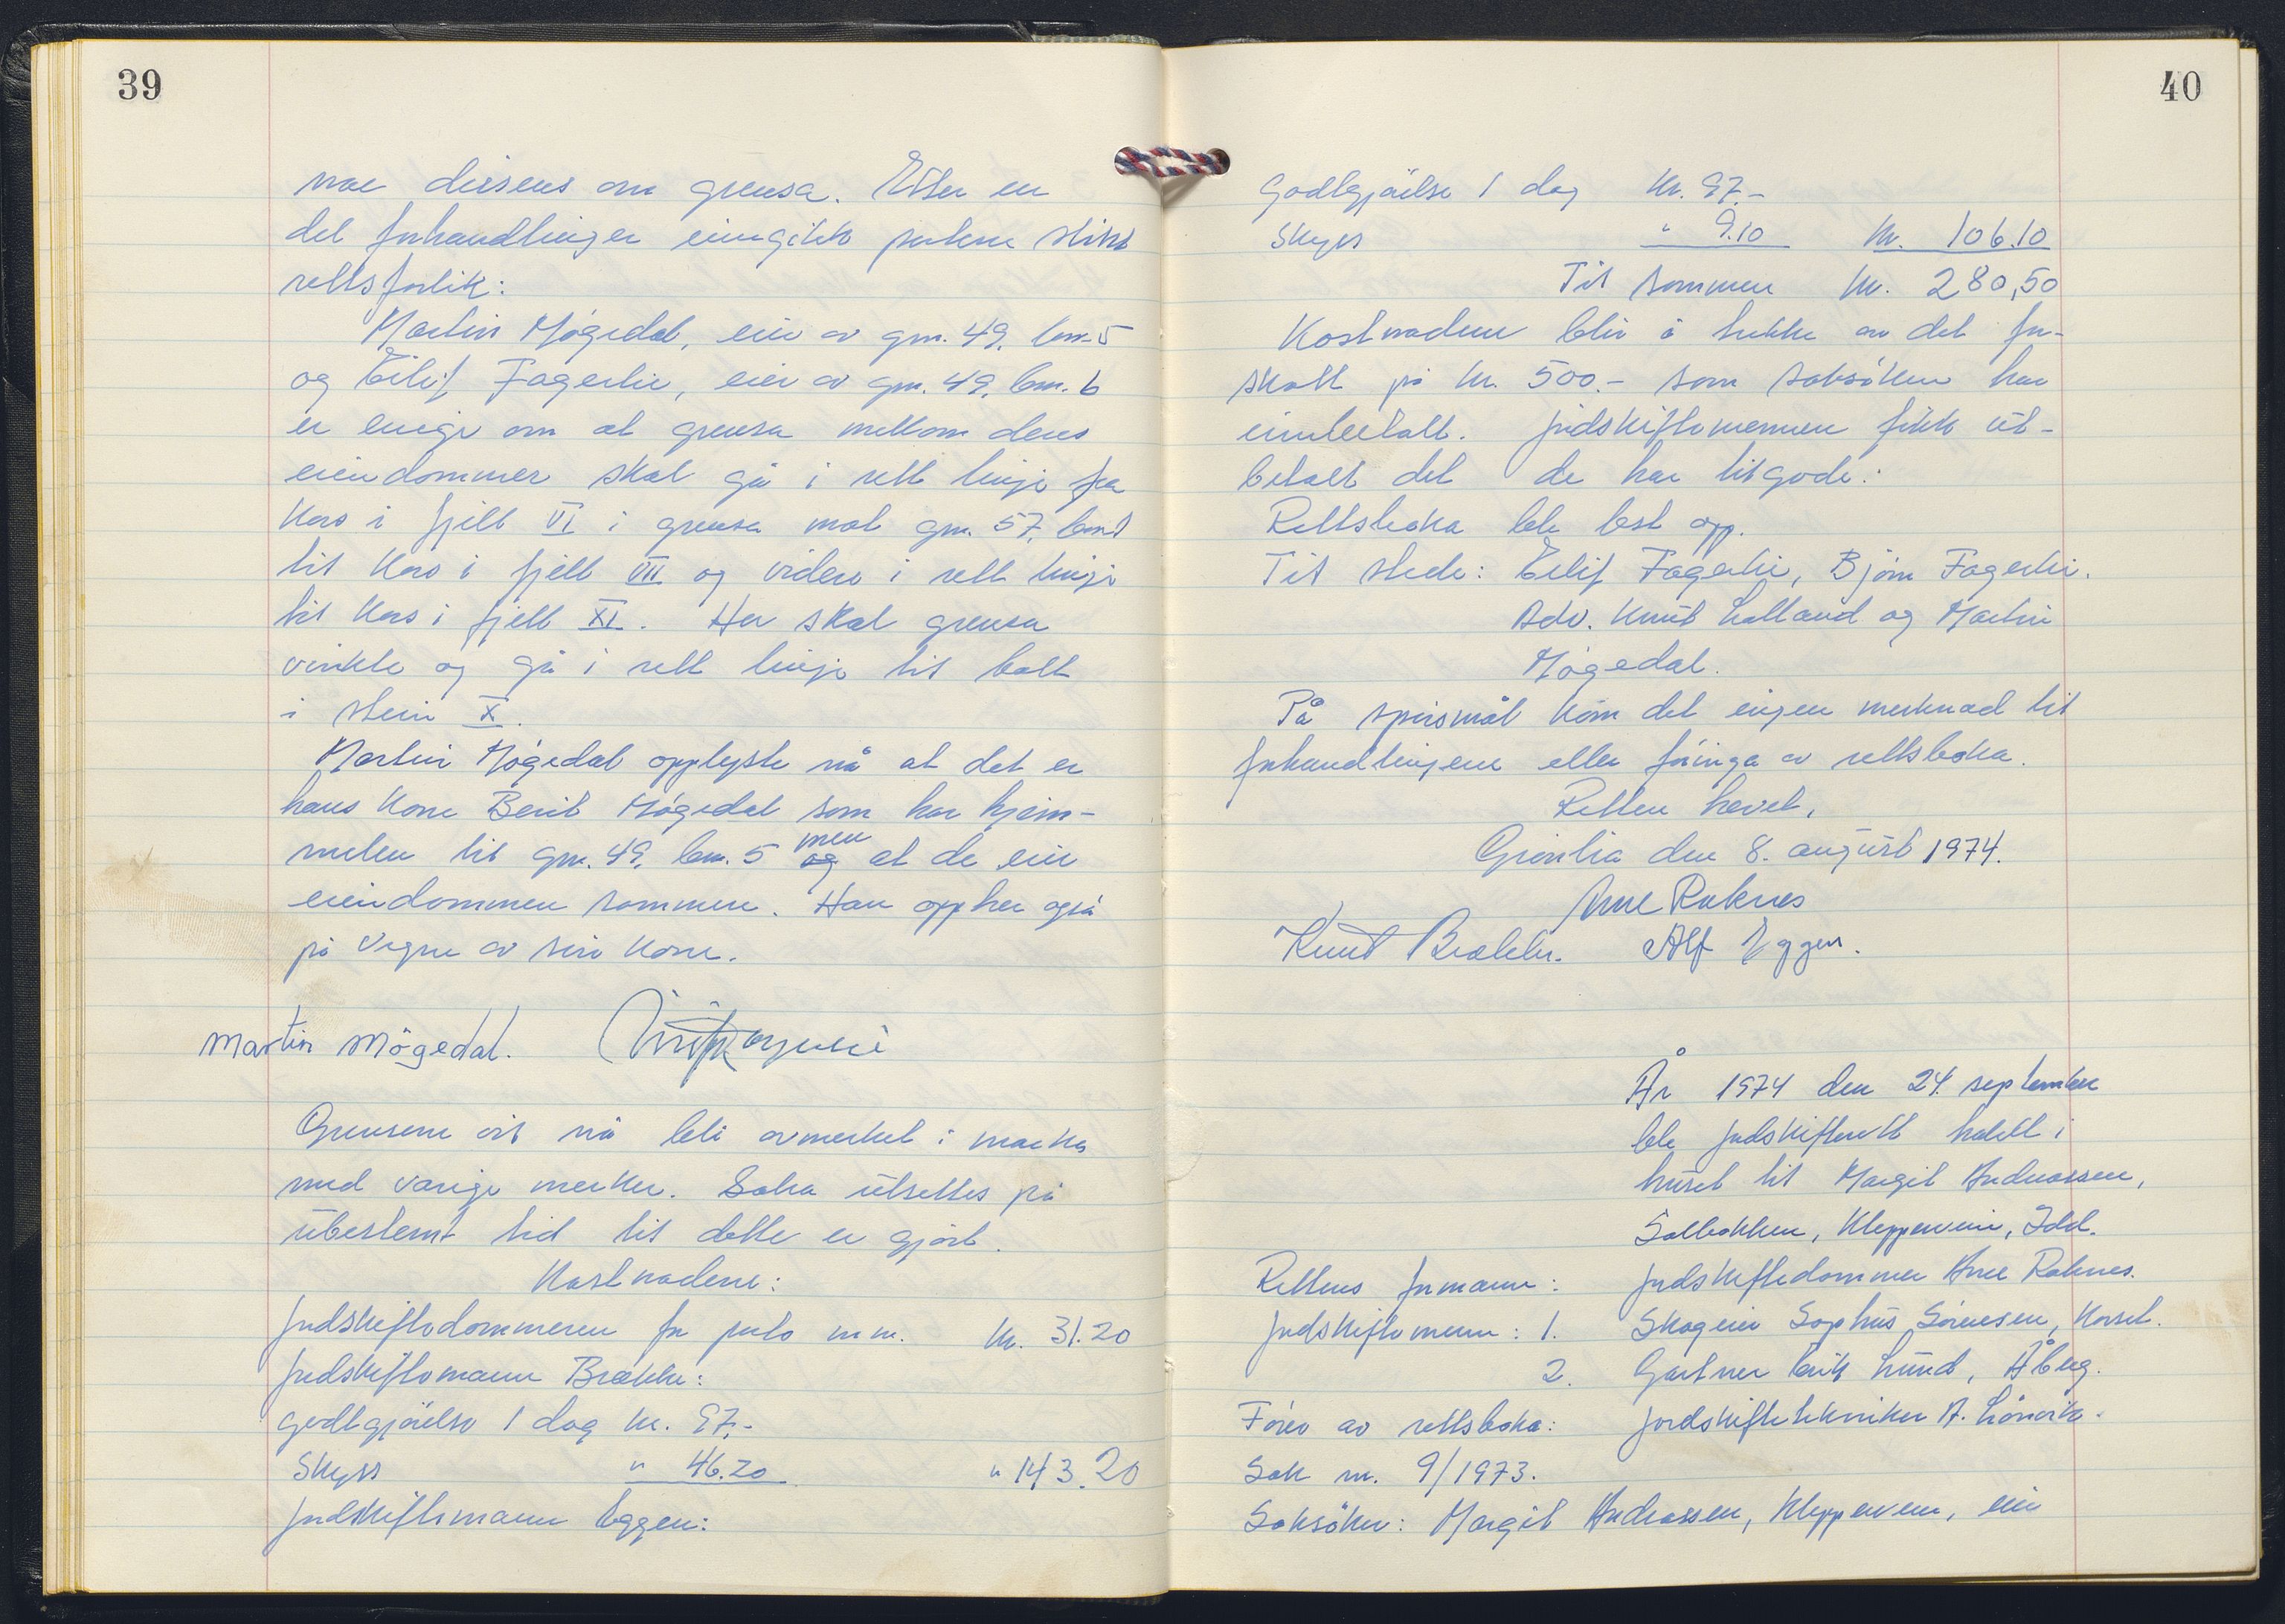 39
noe disens om grensa. Etter en
del forhandlinger inngikk partene slikt
rettsforlik:
Martin Mögedal, eier av gnr. 49, bnr. 5
og Eilif Fagerlie, eier av gnr. 49, bnr. 6
er enige om at grensa mellom deres
eiendommer skal gå i rett linje fra
kors i fjell VI i grensa mot gnr. 57, bnr. 1
til kors i fjell VII og videre i rett linje
til kors i fjell XI. Her skal grensa
vinkle og gå i rett linje til bolt
i stein X.
Martin Mögedal opplyste nå at det er
hans kone Berit Mögedal som har hjem-
melen til gnr. 49, bnr. 5 og men at de eier
eiendommen sammen. Han opptrer også
på vegne av sin kone.
Martin Mögedal.
Grensene vil nå bli avmerket i marka
med varige merker. Saka utsettes på
ubestemt tid til dette er gjort.
Kostnadene:
Jordskiftedommeren for porto m.m. kr. 31.20
Jordskiftemann Brække:
godtgjörelse 1 dag kr. 97,-
Skyss " 46.20 " 143.20
Jordskiftemann Eggen:
40
Godtgjörelse 1 dag kr. 97.-
Skyss " 9.10 kr. 106.10
Til sammen kr. 280,50
Kostnadene blir å trekke av det for-
skott på kr. 500.- som saksökeren har
innbetalt. Jordskiftemennene fikk ut-
betalt det de har tilgode.
Rettsboka ble lest opp.
Til stede: Eilif Fagerlie, Björn Fagerlie.
Adv. Knut Lolland og Martin
Mögedal.
På spörsmål kom det ingen merknad til
forhandlingene eller föringa av rettsboka.
Retten hevet,
Grönlia den 8. august 1974.
Arne Raknes
Knut Brække. Alf Eggen.
År 1974 den 24. september
ble jordskifterett holdt i
huset til Margit Andreassen,
Solbakken, Kleppervein, Idd.
Rettens formann: Jordskiftedommer Arne Raknes.
Jordskiftemenn: 1. Skogeier Sophus Sörensen, Korset.
2. Gartner Erik Lund, Åberg.
Förer av rettsboka: Jordskiftetekniker A. Lönvik.
Sak nr. 9/1973.
Saksöker: Margit Andreassen, Kleppervein, eier